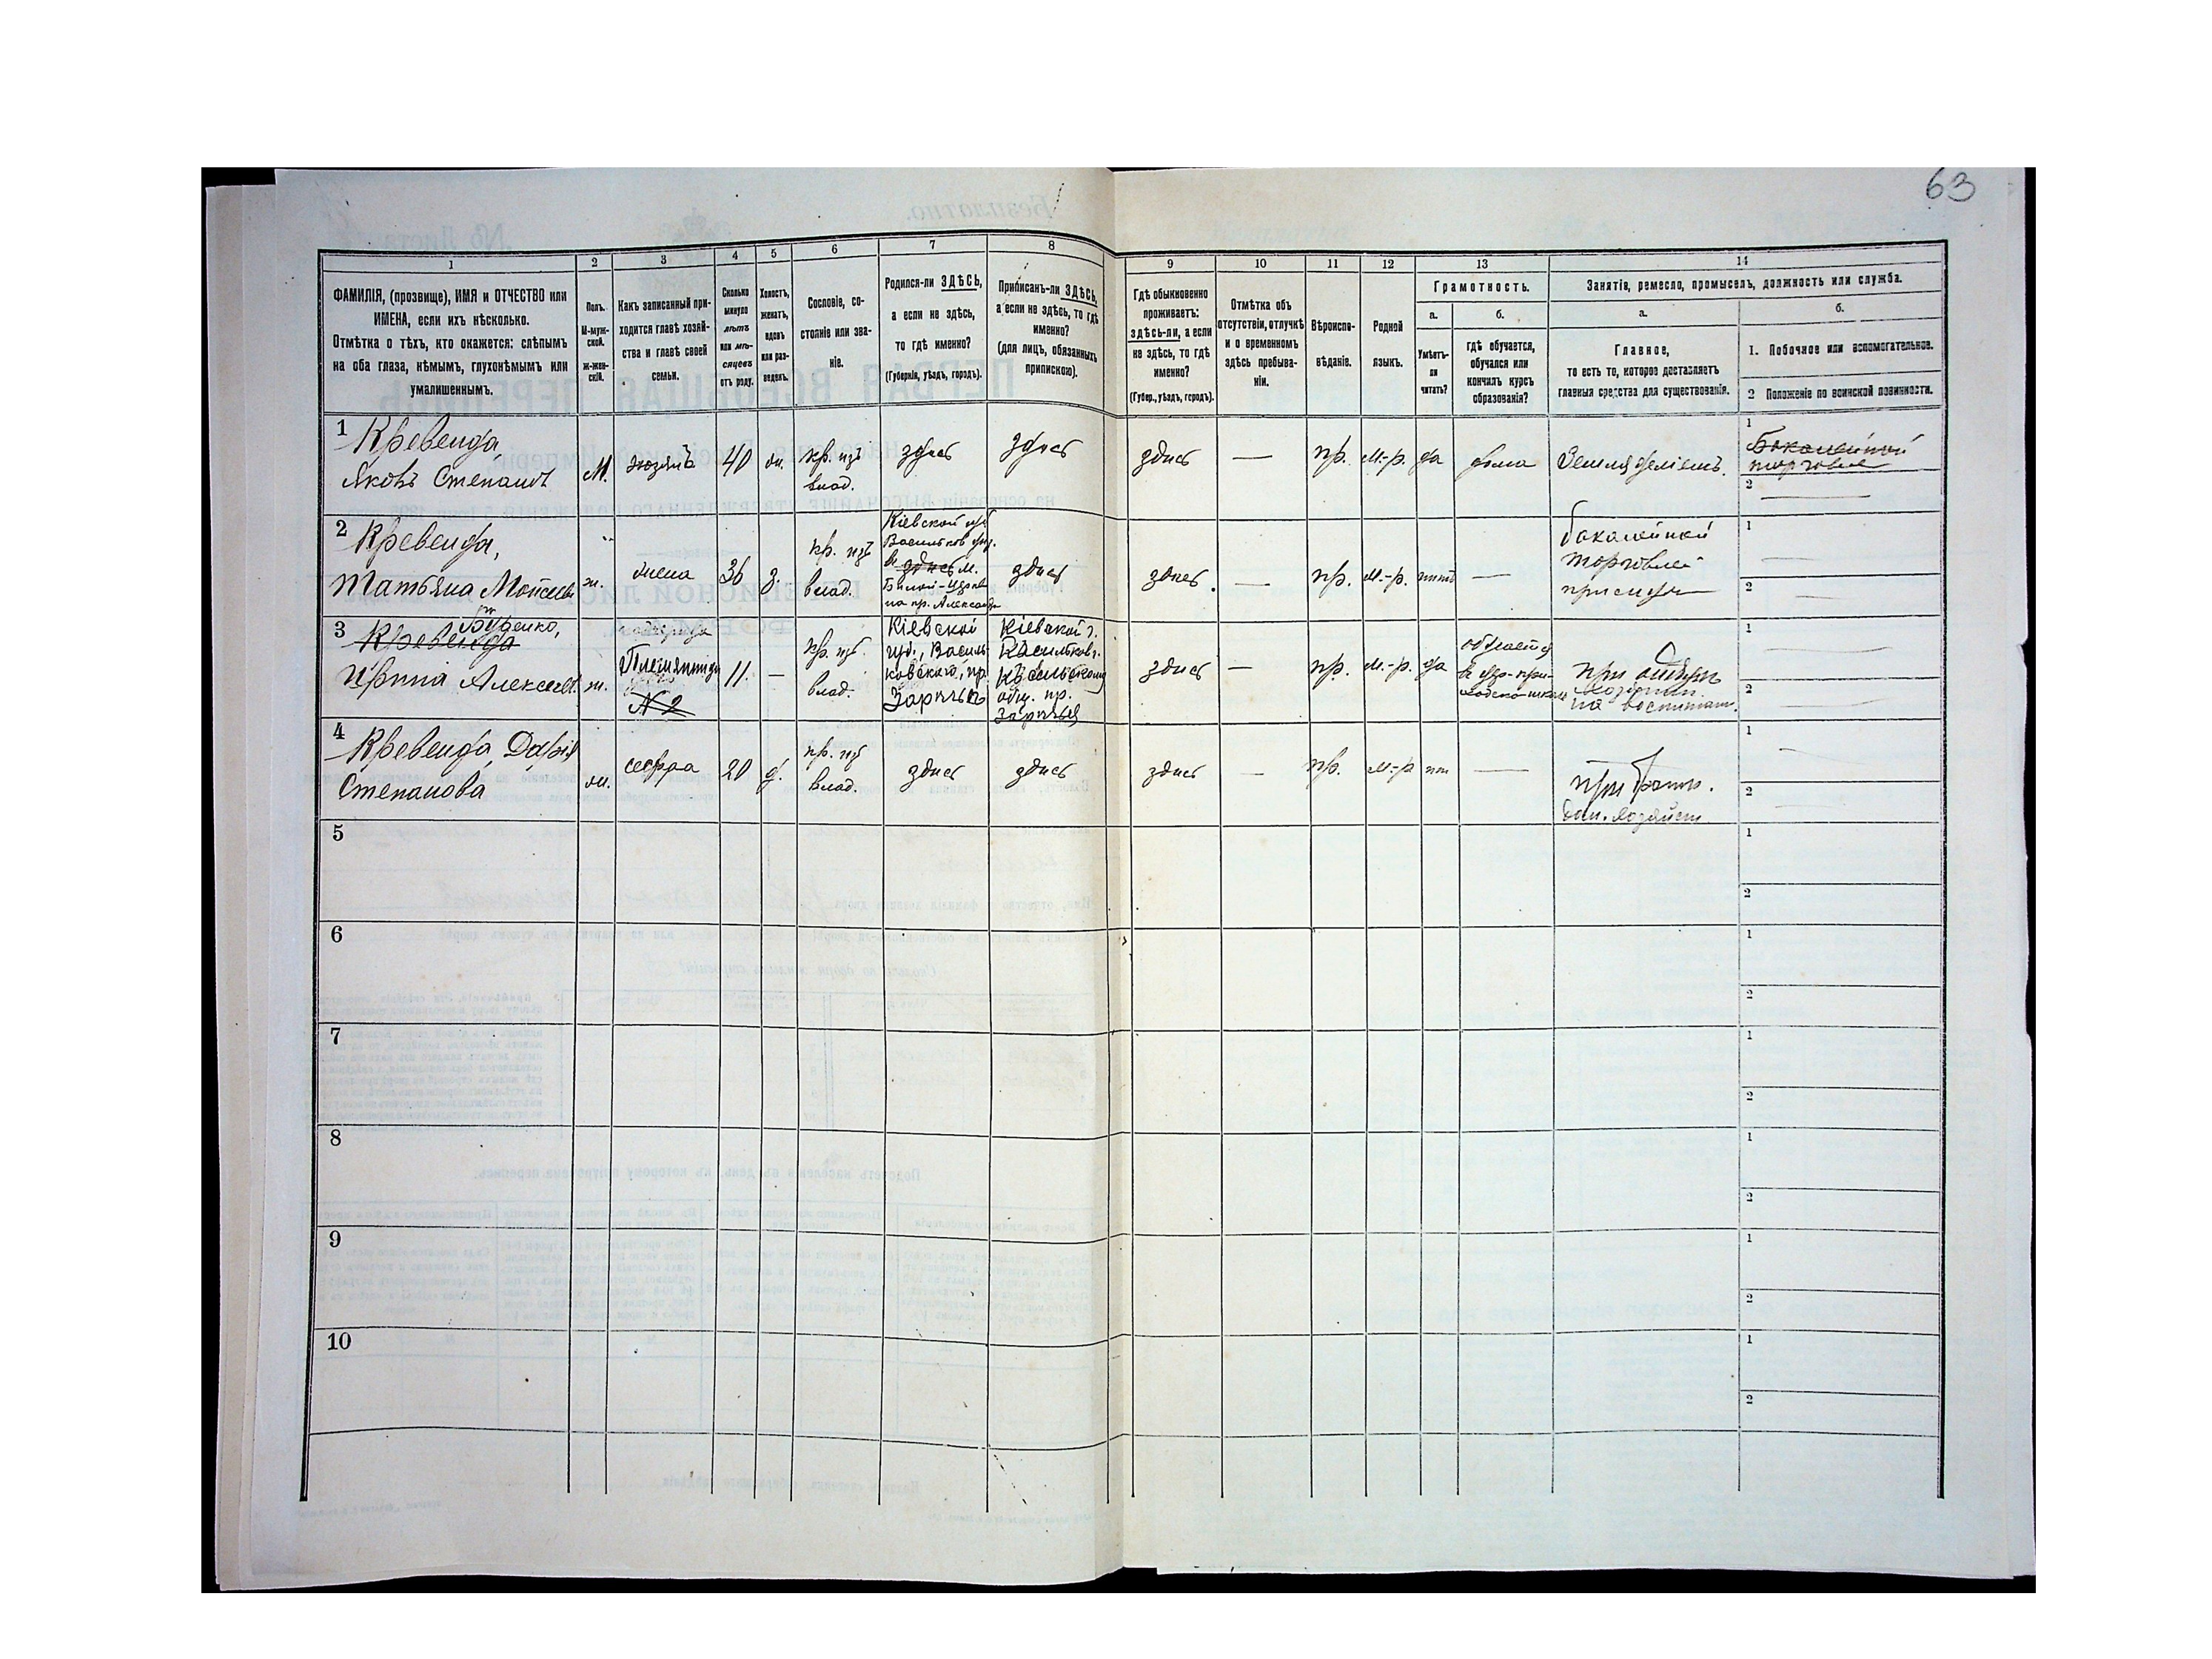 63
1
2
3
4
5
6
7
8
9
10
11
12
13
14
ФАМИЛІЯ, (прозвище), ИМЯ и ОТЧЕСТВО или
ИМЕНА, если ихъ нѣсколько.
Отмѣтка о тѣхъ, кто окажется: слѣпымъ
на оба глаза, нѣмымъ, глухонѣмымъ или
умалишеннымъ.
Полъ.
М-муж-
ской.
Ж-жен-
скій.
Какъ записанный при-
ходится главѣ хозяй-
ства и главѣ своей
семьи.
Сколько
минуло
лѣтъ
или мѣ-
сяцевъ
отъ роду.
Холостъ,
женатъ,
вдовъ
или раз-
веденъ.
Сословіе, со-
стояніе или зва-
ніе.
Родился-ли ЗДѢСЬ,
а если не здѣсь,
то гдѣ именно?
(Губернія, уѣздъ, городъ).
Приписанъ-ли ЗДѢСЬ,
а если не здѣсь, то гдѣ
именно?
(для лицъ, обязанныхъ
припискою).
Гдѣ обыкновенно
проживаетъ:
здѣсь-ли, а если
не здѣсь, то гдѣ
именно?
(Губер., уѣздъ, городъ).
Отмѣтка объ
отсутствіи, отлучкѣ
и о временномъ
здѣсь пребыва-
ніи.
Вѣроиспо-
вѣданіе.
Родной
языкъ.
Грамотность.
а.
Умѣетъ-
ли
читать?
б.
гдѣ обучается,
обучался или
кончилъ курсъ
образованія?
Занятіе, ремесло, промыселъ, должность или служба.
а.
Главное,
то есть то, которое доставляетъ
главныя средства для существованія.
б.
1. Побочное или вспомогательное.
2 Положеніе по воинской повинности.
1
Кревенда,
Яковъ Степановъ
М.
хозяинъ
40
ж.
кр. изъ
влад.
здѣсь
здѣсь
здѣсь
—
пр.
м.-р.
да
дома
Земледѣліемъ.
1
Бакалейной
торговле
2
2
Кревенда,
Татьяна Моисеев
ж.
жена
36
з.
кр. изъ
влад.
Кіевской губ
Васильков уѣз.
въ здѣсь м.
Бѣлой-Церкв
здѣсь
здѣсь
—
пр.
м.-р.
нѣтъ
—
бакалейной
торговлей
1
2
3
Кревенда
Ирина Алексѣев.
ж.
Племянница
№ 2
11.
—
кр. изъ.
влад.
Кіевской
губ., Василь
ковскаго, пр.
Зарѣчье
Кіевской г.
Васильков.
общ. пр.
Зарѣчья
здѣсь
—
пр.
м.-р.
да
обучается
1
2
4
Кревенда, Дарія
Степанова
ж.
сестра
20
д.
кр. изъ
влад.
здѣсь
здѣсь
здѣсь
—
пр.
м.-р
—
при
1
2
5
1
2
6
1
2
7
1
2
8
1
2
9
1
2
10
1
2